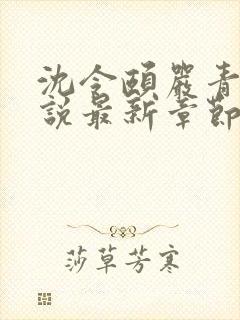 沈令頤嚴青
說最新章節
莎草芳寒